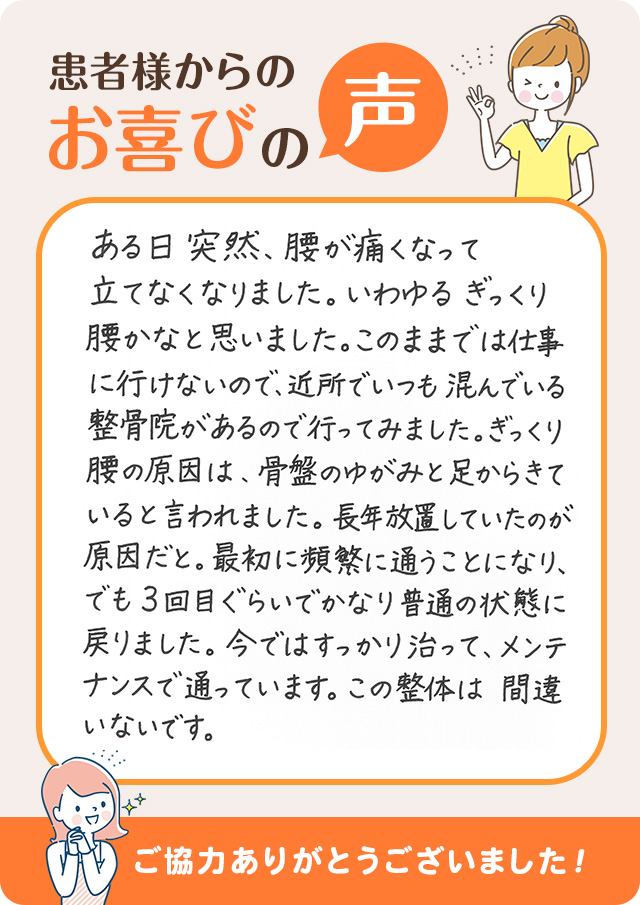 患者様からの
お喜びの
声
ある日 突然、腰が痛くなって
立てなくなりました。いわゆる ぎっくり
腰かなと思いました。このままでは仕事
に行けないので、近所でいつも 混んでいる
整骨院があるので行ってみました。ぎっくり
腰の原因は、骨盤のゆがみと足からきて
いると言われました。長年放置していたのが
原因だと。最初に頻繁に通うことになり、
でも 3回目ぐらいでかなり普通の状態に
戻りました。今ではすっかり治って、メンテ
ナンスで通っています。この整体は 間違
いないです。
ご協力ありがとうございました!